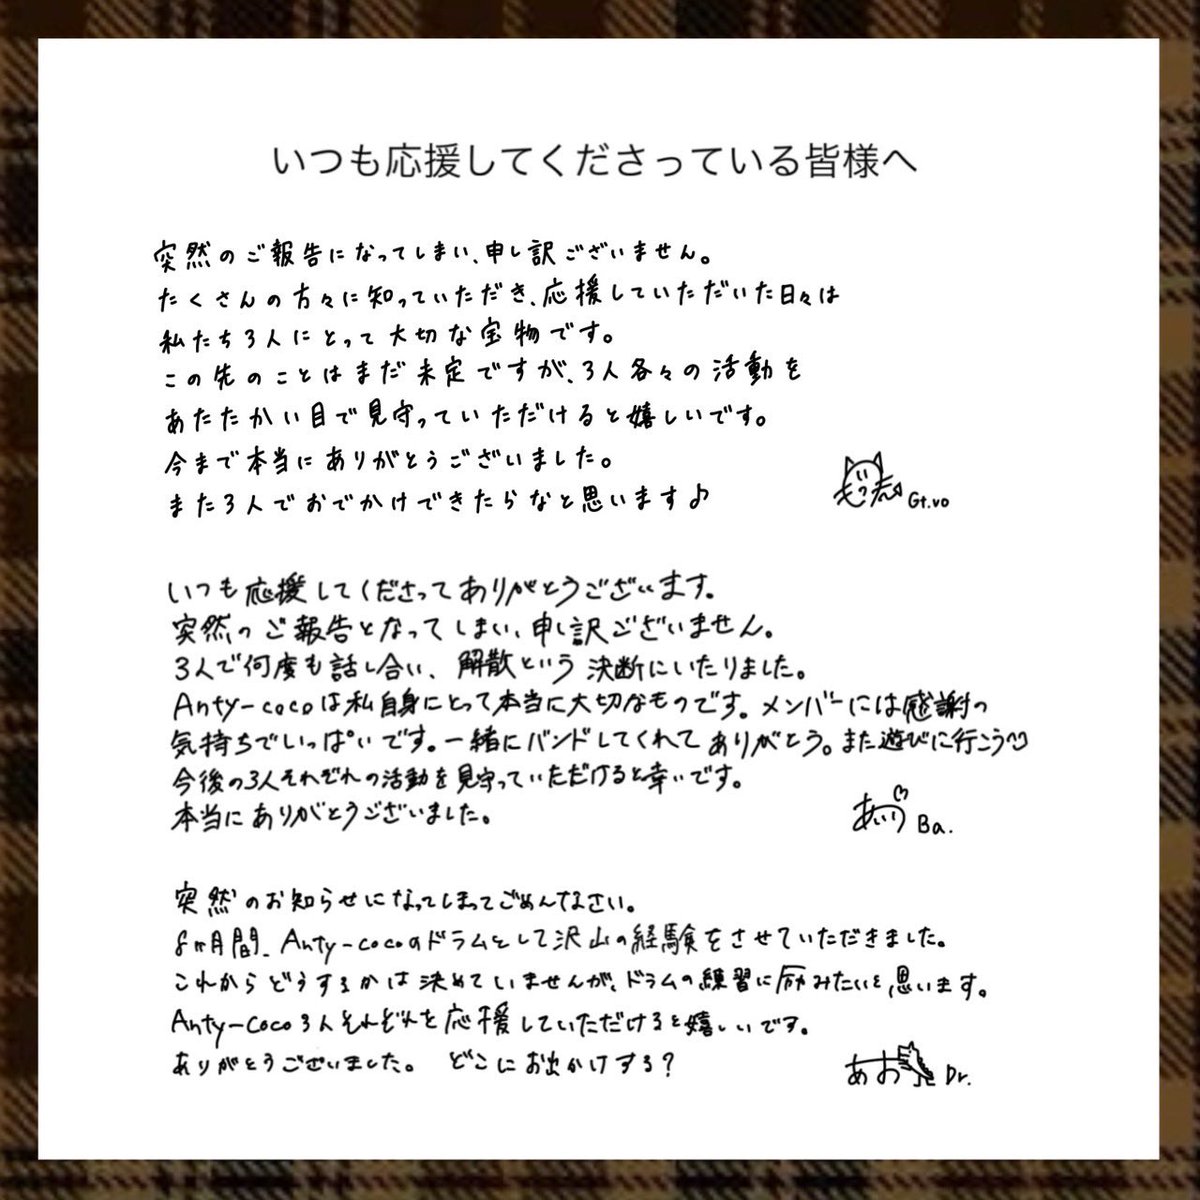 いつも応援してくださっている皆様へ
突然のご報告になってしまい、申し訳ございません。
たくさんの方々に知っていただき、応援していただいた日々は
私たち3人にとって大切な宝物です。
この先のことはまだ未定ですが、3人各々の活動を
あたたかい目で見守っていただけると嬉しいです。
今まで本当にありがとうございました。
また3人でおでかけできたらなと思います♪
Gt.vo
いつも応援してくださってありがとうございます。
突然のご報告となってしまい、申し訳ございません。
3人で何度も話し合い、解散という決断にいたりました。
Anty-cocoは私自身にとって本当に大切なものです。メンバーには感謝の
気持ちでいっぱいです。一緒にバンドしてくれてありがとう。また遊びに行こう
今後の3人それぞれの活動を見守っていただけると幸いです。
本当にありがとうございました。
あいり Ba.
突然のお知らせになってしまってごめんなさい。
8ヶ月間、Anty-cocoのドラムとして沢山の経験をさせていただきました。
これからどうするかは決めていませんが、ドラムの練習に励みたいと思います。
Anty-coco3人それぞれを応援していただけると嬉しいです。
ありがとうございました。 どこにお出かけする?
あお Dr.